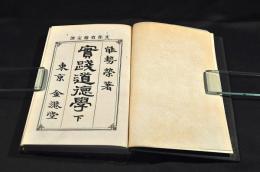 文部省檢定濟
能勢榮著
實踐道德學 下
東京 金港堂